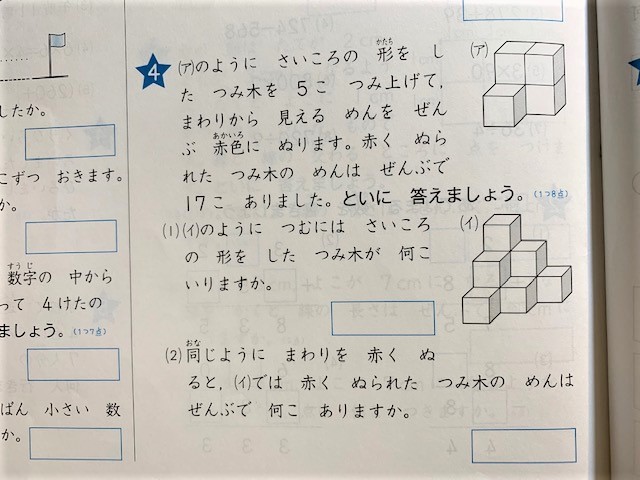 したか。
こずつ おきます。
か。
数字の 中から
すうじ
って 4けたの
ましょう。(1つ7点)
ばん 小さい 数
か。
4 (ア)のように さいころの 形を し
かたち
た つみ木を 5こ つみ上げて,
まわりから 見える めんを ぜん
ぶ 赤色に ぬります。赤く ぬら
あかいろ
れた つみ木の めんは ぜんぶで
17こ ありました。といに 答えましょう。(1つ8点)
(ア)
(1)(イ)のように つむには さいころ
の 形を した つみ木が 何こ
いりますか。
(イ)
(2)同じように まわりを 赤く ぬ
おな
ると,(イ)では 赤く ぬられた つみ木の めんは
ぜんぶで 何こ ありますか。